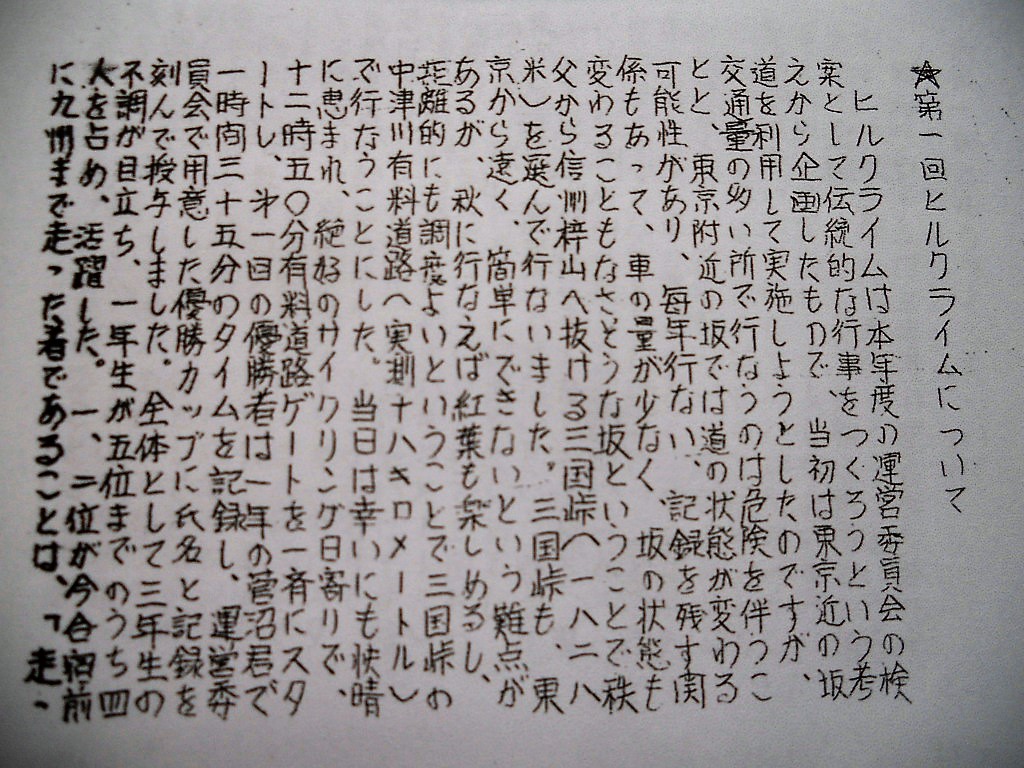 ★第一回ヒルクライムについて
ヒルクライムは本年度の運営委員会の検
案として伝統的な行事をつくろうという考
えから企画したもので、当初は東京近の坂
道を利用して実施しようとしたのですが、
交通量の多い所で行なうのは危険を伴うこ
とと、東京附近の坂では道の状態が変わる
可能性があり、毎年行ない、記録を残す関
係もあって、車の量が少なく、坂の状態も
変わることもなさそうな坂ということで秩
父から信州梓山へ抜ける三国峠(一八二八
米)を選んで行ないました。三国峠も、東
京から遠く、簡単にできないという難点が
あるが、秋に行なえば紅葉も楽しめるし、
距離的にも調度よいということで三国峠の
中津川有料道路へ実測十八キロメートル)
で行なうことにした。当日は幸いにも快晴
に恵まれ、絶好のサイクリング日寄りで、
十二時五〇分有料道路ゲートを一斉にスタ
ートし、才一回の優勝者は一年の菅沼君で
一時間三十五分のタイムを記録し、運営委
員会で用意した優勝カップに氏名と記録を
刻んで授与しました。全体として三年生の
不調が目立ち、一年生が五位までのうち四
人を占め、活躍した。一、二位が今合宿前
に九州まで走った者であることは、「走